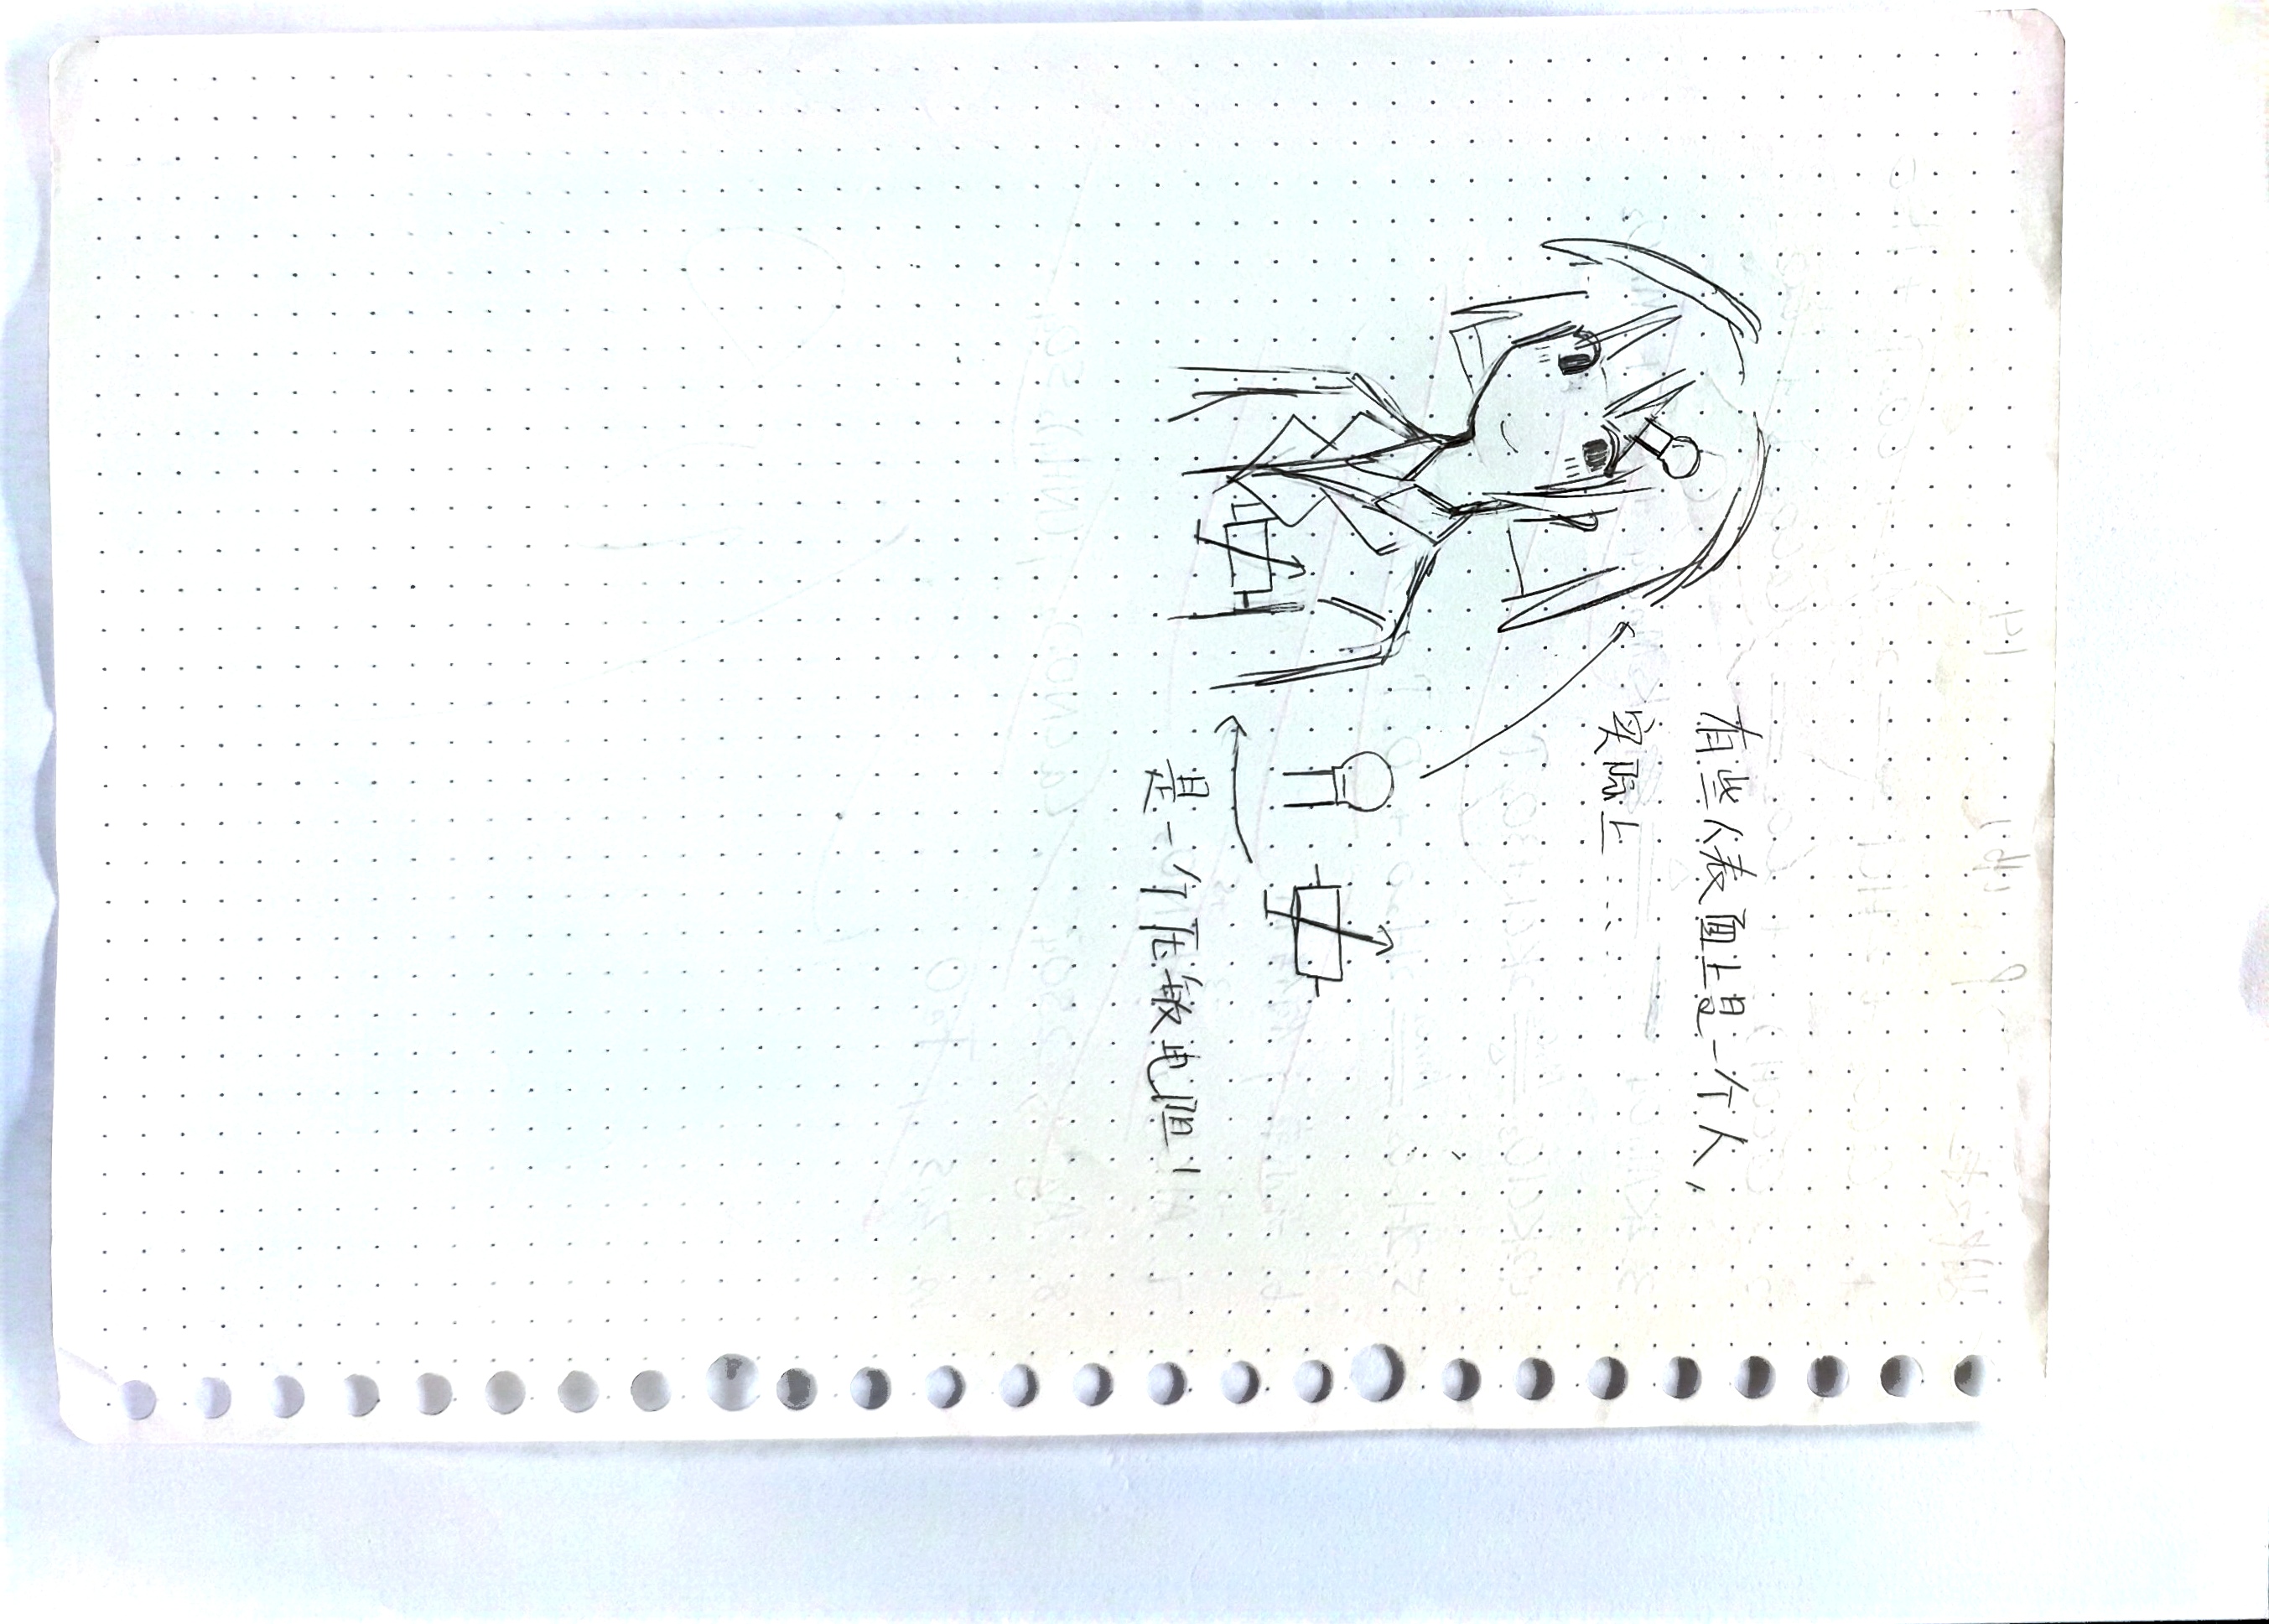 有些人表面上是一个人，
实际上……
是一个压敏电阻！